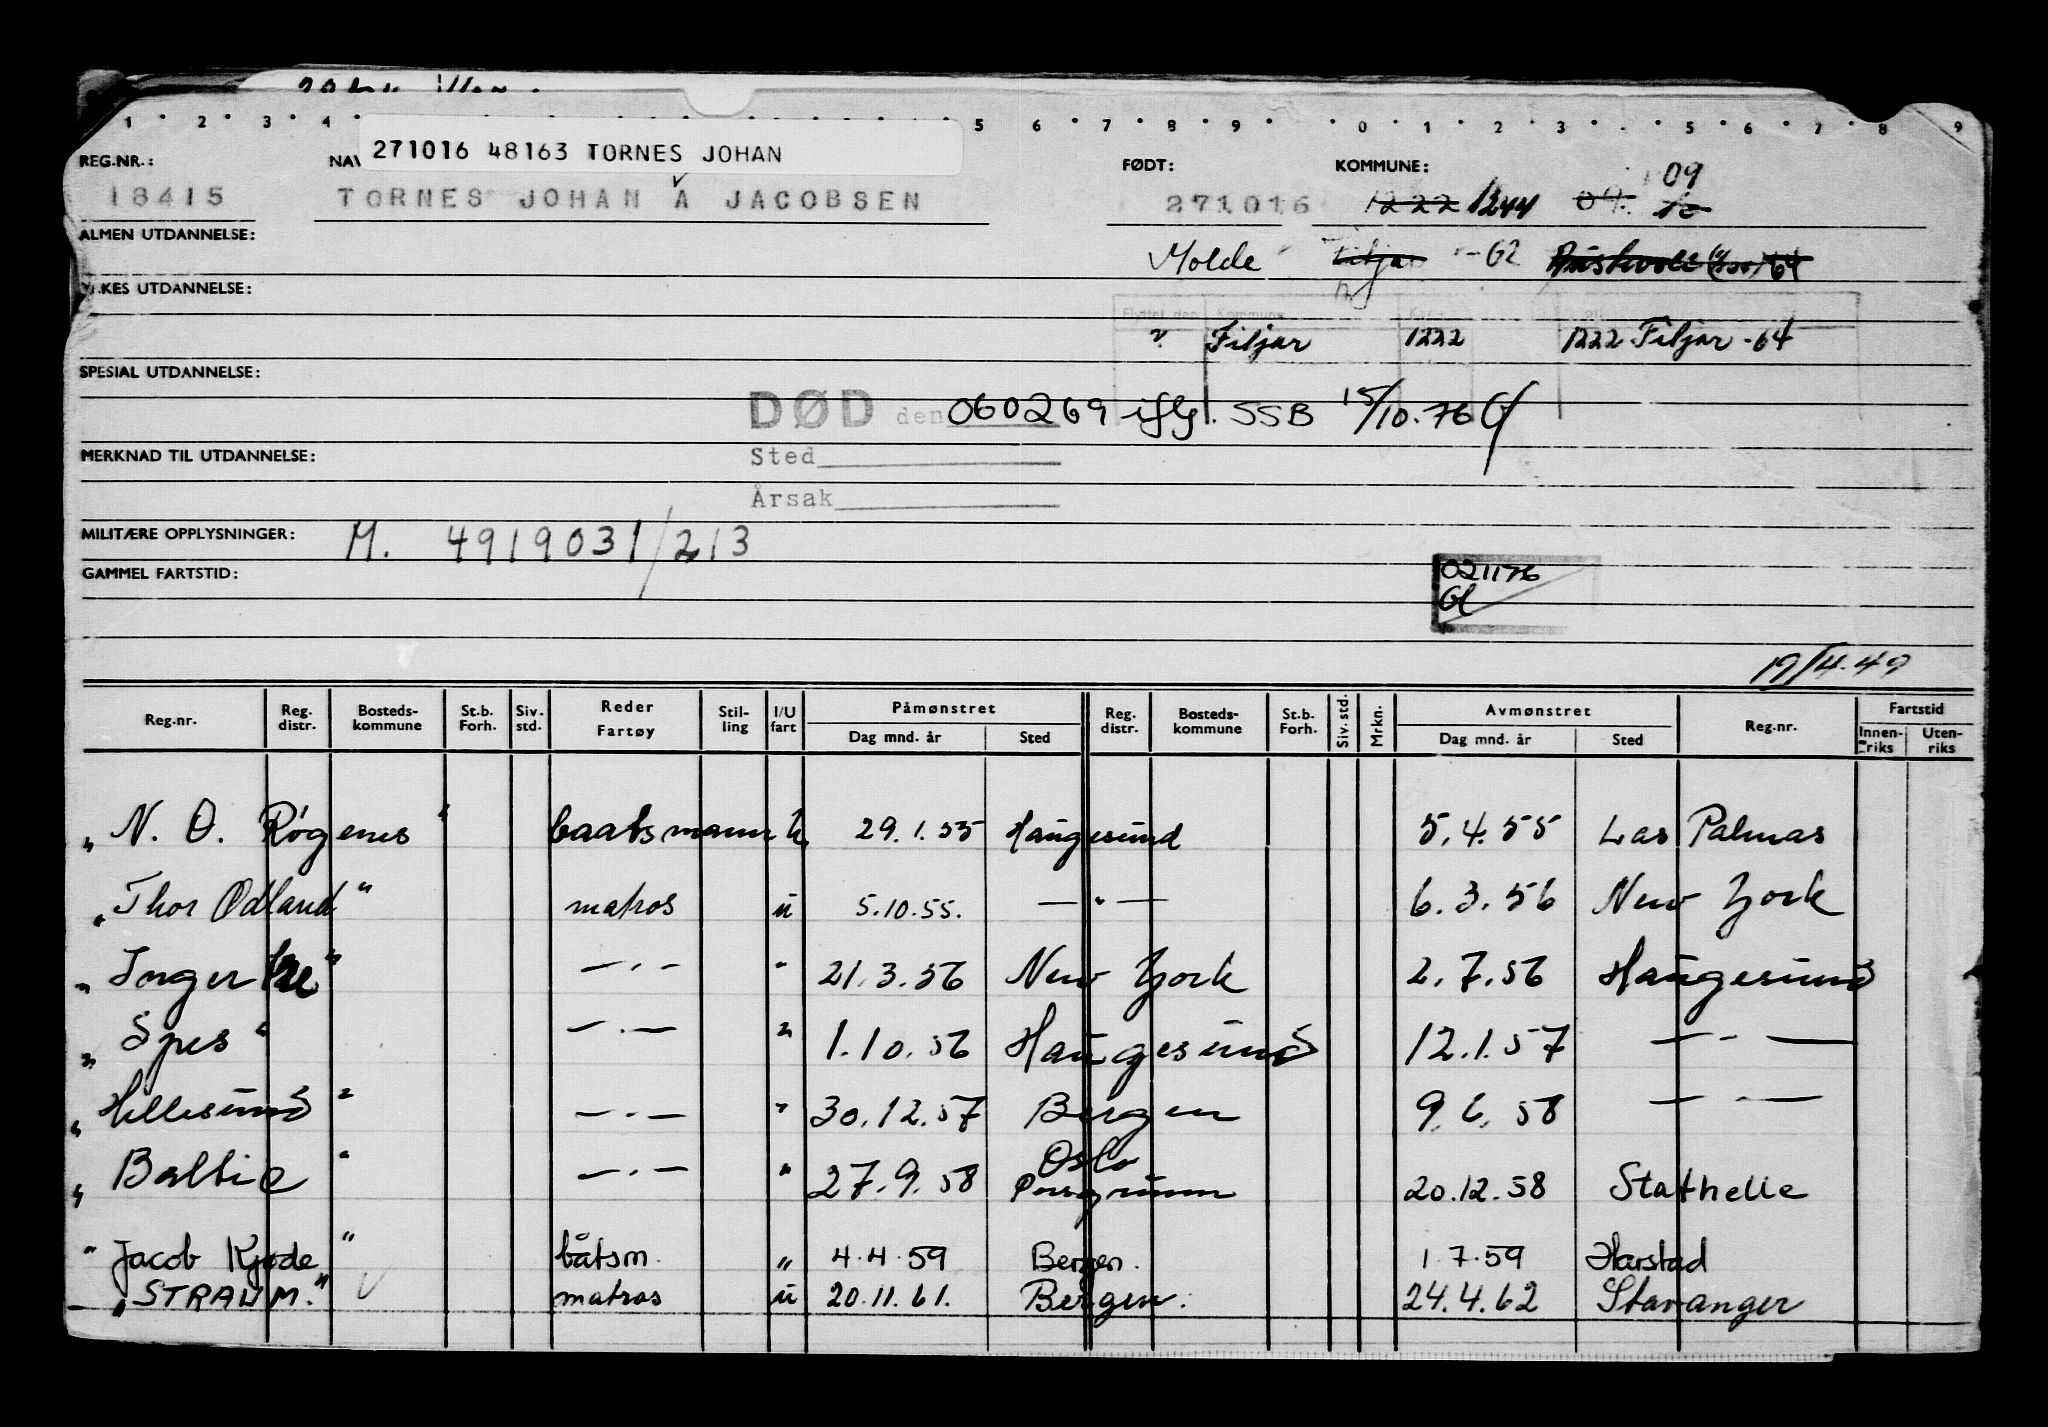 1 2 3 4 5 6 7 8 9 0 1 2 3 5 6 7 8 9
271016 48163 TORNES JOHAN
REG.NR.: NAV FØDT: KOMMUNE: 09
18415 TORNES JOHAN A JACOBSEN 271016 1222 1244 04 10
ALMEN UTDANNELSE:
Molde Fitjar -62
KES UTDANNELSE:
Flyttet den Kommune
" Fitjar 1222 1222 Fitjar -64
SPESIAL UTDANNELSE:
DØD den 060269 iflg. SSB 15/10.76
MERKNAD TIL UTDANNELSE:
Sted
Årsak
MILITÆRE OPPLYSNINGER: M. 4919031/213
GAMMEL FARTSTID:
021176
19/4.49
Reg.nr. Reg. distr. Bosteds-kommune St.b. Forh. Siv. std. Reder Fartøy Stil-ling I/U fart Påmønstret Dag mnd. år Sted Reg. distr. Bosteds-kommune St.b. Forh. Siv. std. Mrkn. Avmønstret Dag mnd. år Sted Reg.nr. Fartstid Innen-riks Uten-riks
"N. O. Røgenes" baatsmann u 29.1.55 Haugesund 5.4.55 Las Palmas
"Thor Odland" matros u 5.10.55. —"— 6.3.56 New York
"Inger " —"— " 21.3.56 New York 2.7.56 Haugesund
"Spes" —"— " 1.10.56 Haugesund 12.1.57 —"—
"Hillesund" —"— " 30.12.57 Bergen 9.6.58 —"—
"Baltic" —"— " 27.9.58 Oslo Porsgrunn 20.12.58 Stathelle
"Jacob Kjøde" båtsm. " 4.4.59 Bergen. 1.7.59 Harstad
"STRAUM." matros u 20.11.61. Bergen. 24.4.62 Stavanger